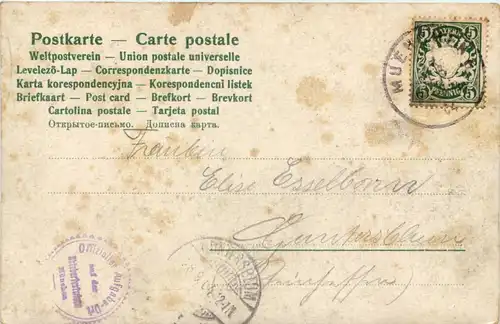 Postkarte — Carte postale
Weltpostverein — Union postale universelle
Levelező-Lap — Correspondenzkarte — Dopisnice
Karta korespondencyjna — Korespondencni listek
Briefkaart — Post card — Brefkort — Brevkort
Cartolina postale — Tarjeta postal
Открытое-письмо. Дописна карта.
5 5
5 PFENNIG 5
Fräulein
Elise Esselborn
Guntersblum
Offizieller Aufgabe-Ort
auf der
München